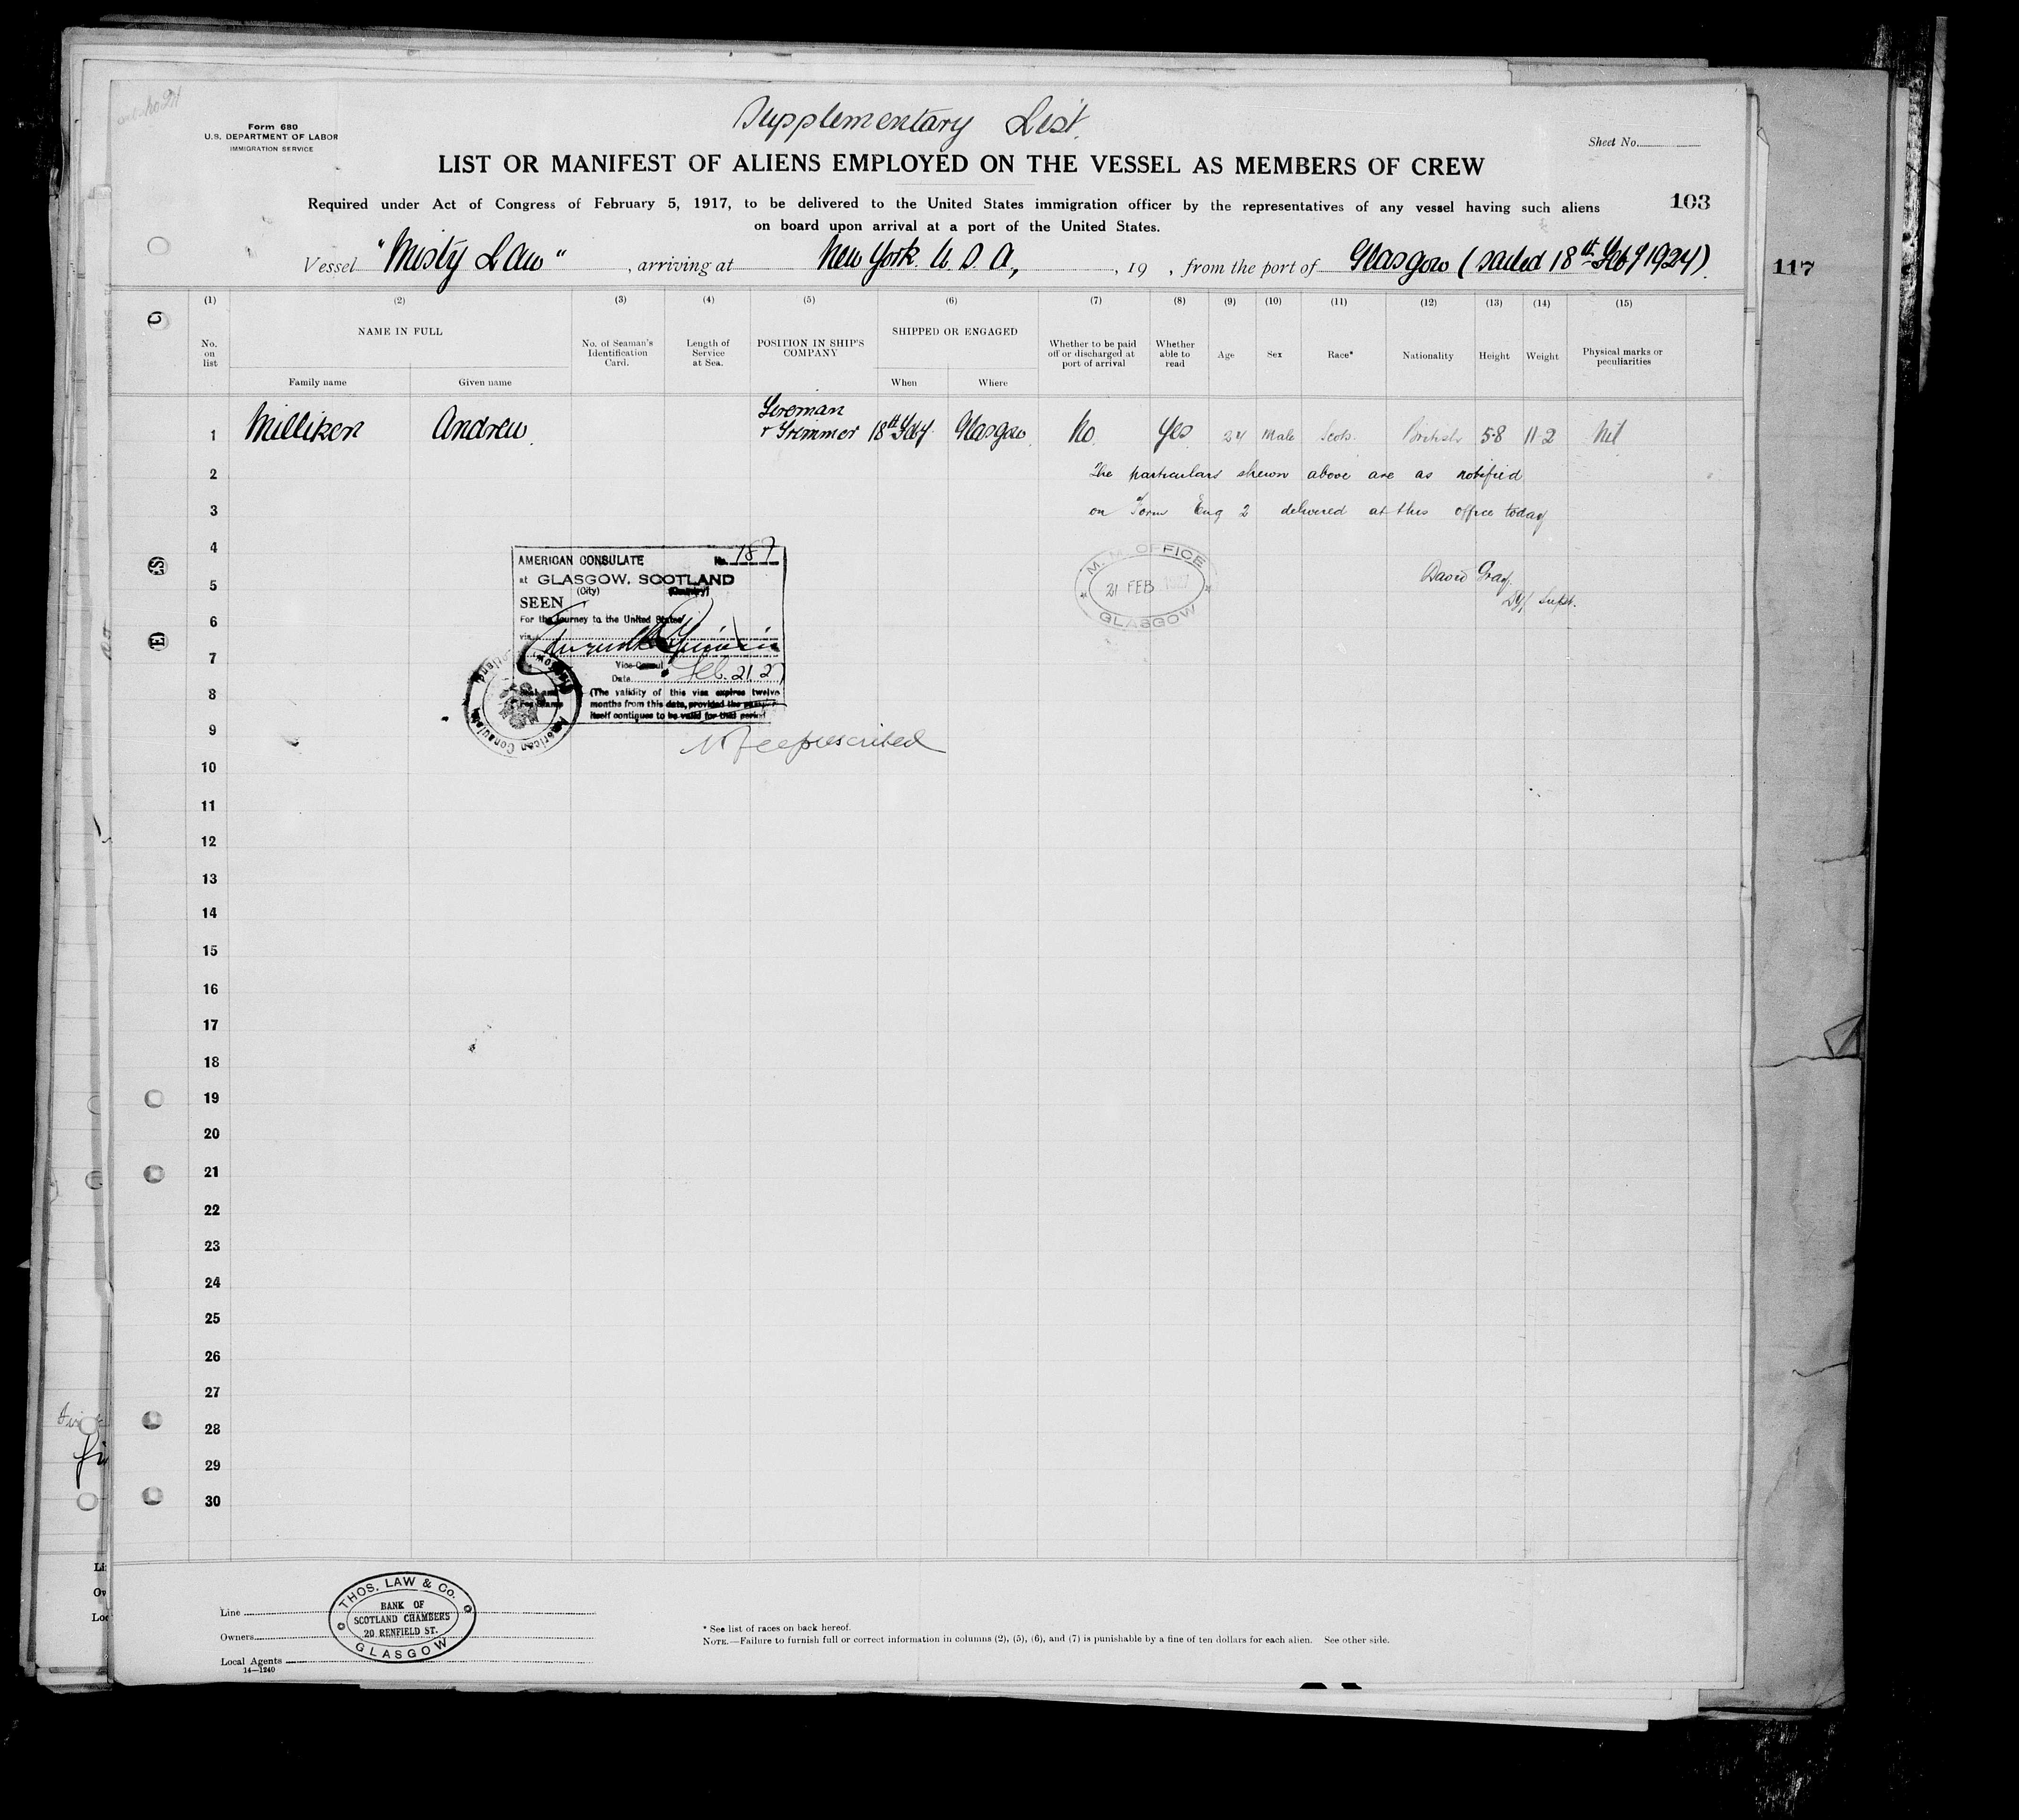 Supplementary List.
Form 680
U.S. DEPARTMENT OF LABOR
IMMIGRATION SERVICE
Sheet No.
LIST OR MANIFEST OF ALIENS EMPLOYED ON THE VESSEL AS MEMBERS OF CREW
103
Required under Act of Congress of February 5, 1917, to be delivered to the United States immigration officer by the representatives of any vessel having such aliens
on board upon arrival at a port of the United States.
Vessel "Misty Law", arriving at New York. U.S.A., , 19 , from the port of Glasgow (sailed 18th Feby 1927).
117
(1) (2) (3) (4) (5) (6) (7) (8) (9) (10) (11) (12) (13) (14) (15)
No. on list
NAME IN FULL
Family name
Given name
No. of Seaman's Identification Card.
Length of Service at Sea.
POSITION IN SHIP'S COMPANY
SHIPPED OR ENGAGED
When
Where
Whether to be paid off or discharged at port of arrival
Whether able to read
Age
Sex
Race*
Nationality
Height
Weight
Physical marks or peculiarities
1 Milliken Andrew. Fireman + Trimmer 18th Feby. Glasgow. No. Yes 24 Male Scots. British 5-8 11-2 Nil
2 The particulars shewn above are as notified
3 on Form Eng 2 delivered at this office today
4
5
6
7
8
9
10
11
12
13
14
15
16
17
18
19
20
21
22
23
24
25
26
27
28
29
30
AMERICAN CONSULATE No. 187
at GLASGOW, SCOTLAND
(City) (Country)
SEEN
For the journey to the United States
via
Vice Consul
Date Feb. 21. 27
(The validity of this visa expires twelve
months from this date, provided the passport
itself continues to be valid for that period
American Consulate
No fee prescribed
M.M. OFFICE
21 FEB 1927
GLASGOW
David Gray.
Dy/ Supt.
C
S
E
Line
Owners
Local Agents
14—1240
THOS. LAW & Co.
BANK OF
SCOTLAND CHAMBERS
20 RENFIELD ST.
GLASGOW
* See list of races on back hereof.
NOTE.—Failure to furnish full or correct information in columns (2), (5), (6), and (7) is punishable by a fine of ten dollars for each alien. See other side.